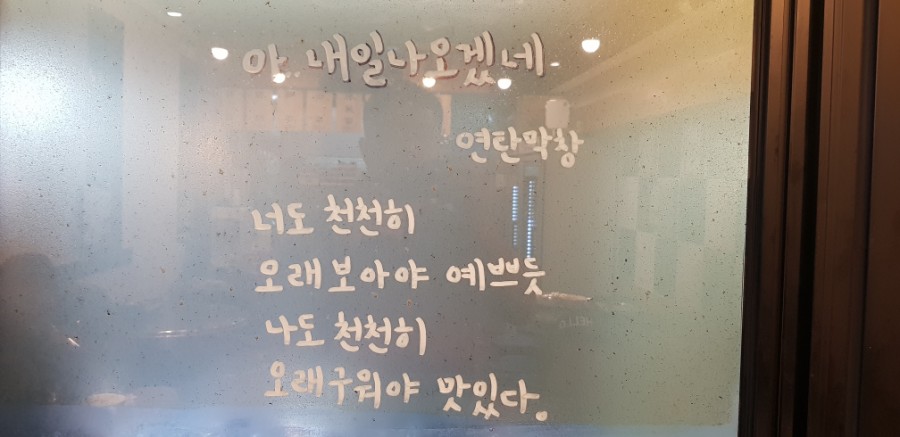 아. 내일나오겠네
연탄막창
너도 천천히
오래보아야 예쁘듯
나도 천천히
오래구워야 맛있다.